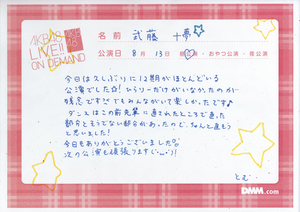 AKB48
LIVE!!
ON DEMAND
名前 武藤 十夢
公演日 8月 13日 昼公演・おやつ公演・夜公演
今日は久しぶりに12期がほとんどいる
公演でした☆!
残念です!! でもみんながいて楽しかったです♪
ダンスはこの前先輩に直されたところで直った
部分とそうでない部分があったので、ちゃんと直そう
と思いました!
今日もありがとうございました
次の公演も頑張ります(・ー・)!
とむ
DMM.com